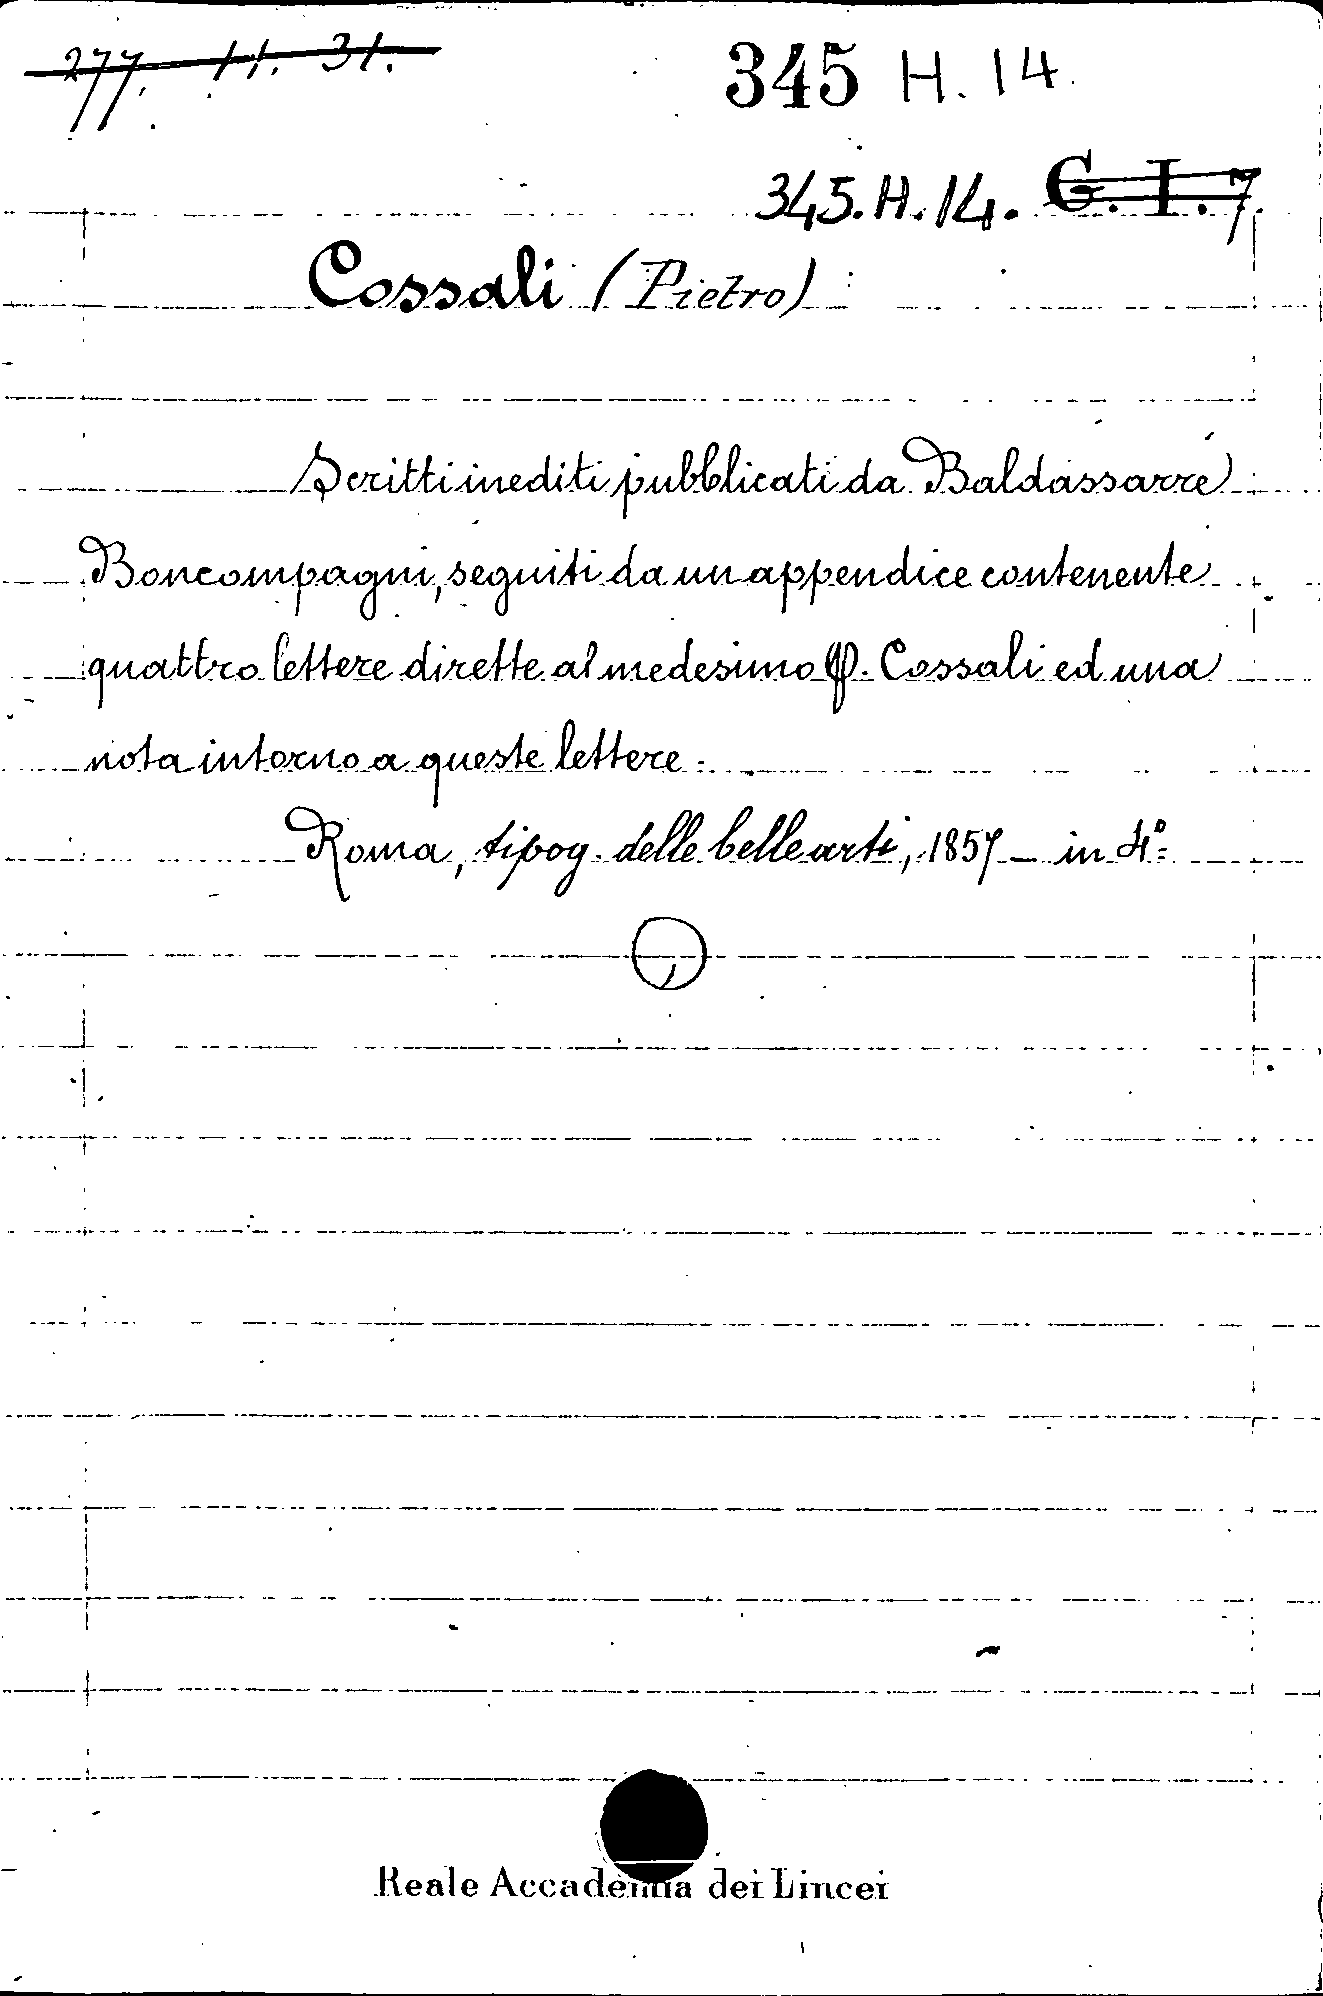 277. 11. 31.
345 H. 14.
345. H. 14. G. I. 7.
Cossali (Pietro)
Scritti inediti pubblicati da Baldassarre
Boncompagni, seguiti da un appendice contenente
quattro lettere dirette al medesimo P. Cossali ed una
nota intorno a queste lettere.
Roma, tipog. delle belle arti, 1857 – in 4º
Reale Accademia dei Lincei